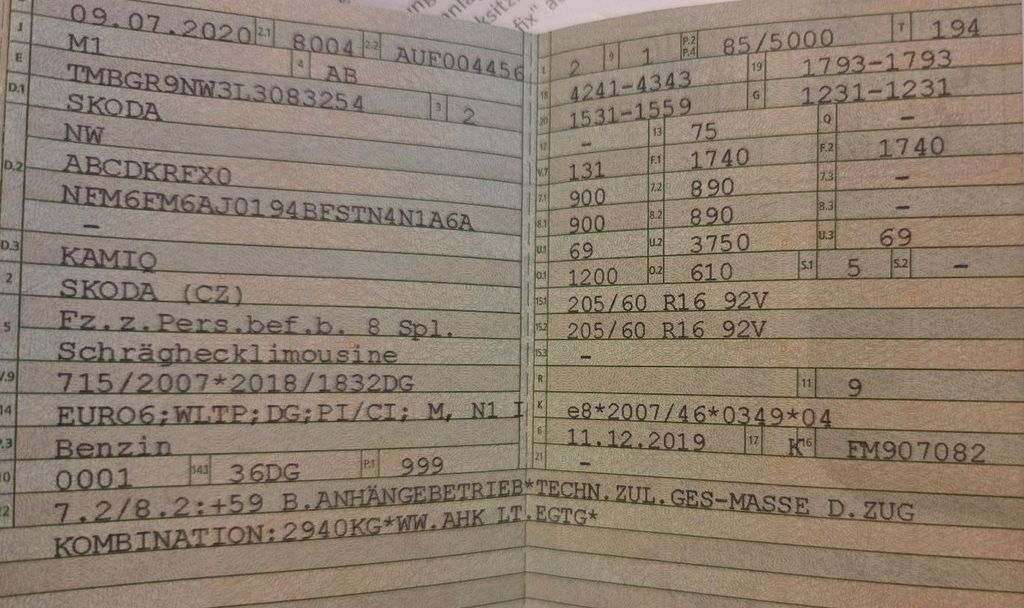 09.07.2020 2.1 8004 2.2 AUF004456
J M1 4 AB
E TMBGR9NW3L3083254 3 2
D.1 SKODA
NW
D.2 ABCDKRFX0
NFM6FM6AJ0194BFSTN4N1A6A
–
D.3 KAMIQ
2 SKODA (CZ)
5 Fz.z.Pers.bef.b. 8 Spl.
Schräghecklimousine
V.9 715/2007*2018/1832DG
14 EURO6;WLTP;DG;PI/CI; M, N1 I
P.3 Benzin
10 0001 14.1 36DG P.1 999
22 7.2/8.2:+59 B.ANHÄNGEBETRIEB*TECHN.ZUL.GES-MASSE D.ZUG
KOMBINATION:2940KG*WW.AHK LT.EGTG*
L 2 9 1 P.2 P.4 85/5000 T 194
18 4241-4343 19 1793-1793
20 1531-1559 G 1231-1231
12 – 13 75 Q –
V.7 131 F.1 1740 F.2 1740
7.1 900 7.2 890 7.3 –
8.1 900 8.2 890 8.3 –
U.1 69 U.2 3750 U.3 69
O.1 1200 O.2 610 S.1 5 S.2 –
15.1 205/60 R16 92V
15.2 205/60 R16 92V
15.3 –
R 11 9
K e8*2007/46*0349*04
6 11.12.2019 17 K 16 FM907082
21 –